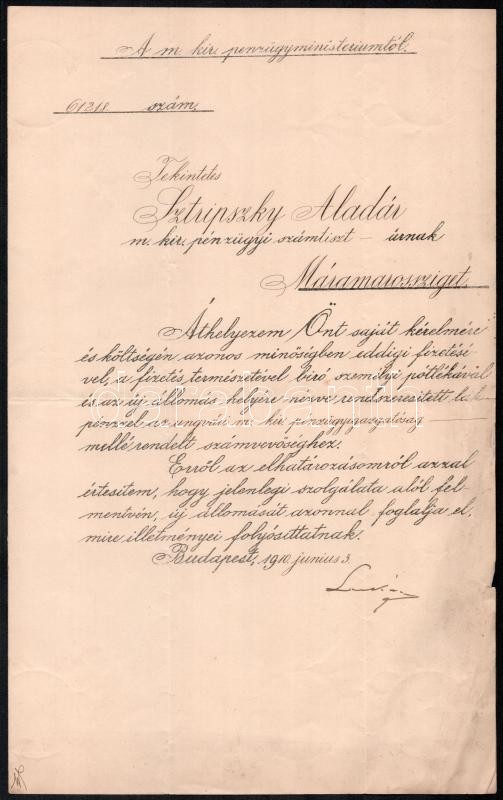 A m. kir. penzügyministeriumtól.
61218. szám.
Tekintetes
Sztripszky Aladár
m. kir. pénzügyi számtiszt — úrnak
Máramarossziget.
Áthelyezem Önt saját kérelmére
és költségén azonos minőségben eddigi fizetésé-
vel, a fizetés természetével biró személyi pótlékával
és az új állomás helyére nézve rendszeresített lak-
pénzzel az ungvári m. kir. pénzügyigazgatóság
mellé rendelt számvevőséghez.
Erről az elhatározásomról azzal
értesitem, hogy jelenlegi szolgálata alól fel-
mentvén, új állomását azonnal foglalja el,
mire illetményei folyósittatnak.
Budapest, 1910. junius 3.